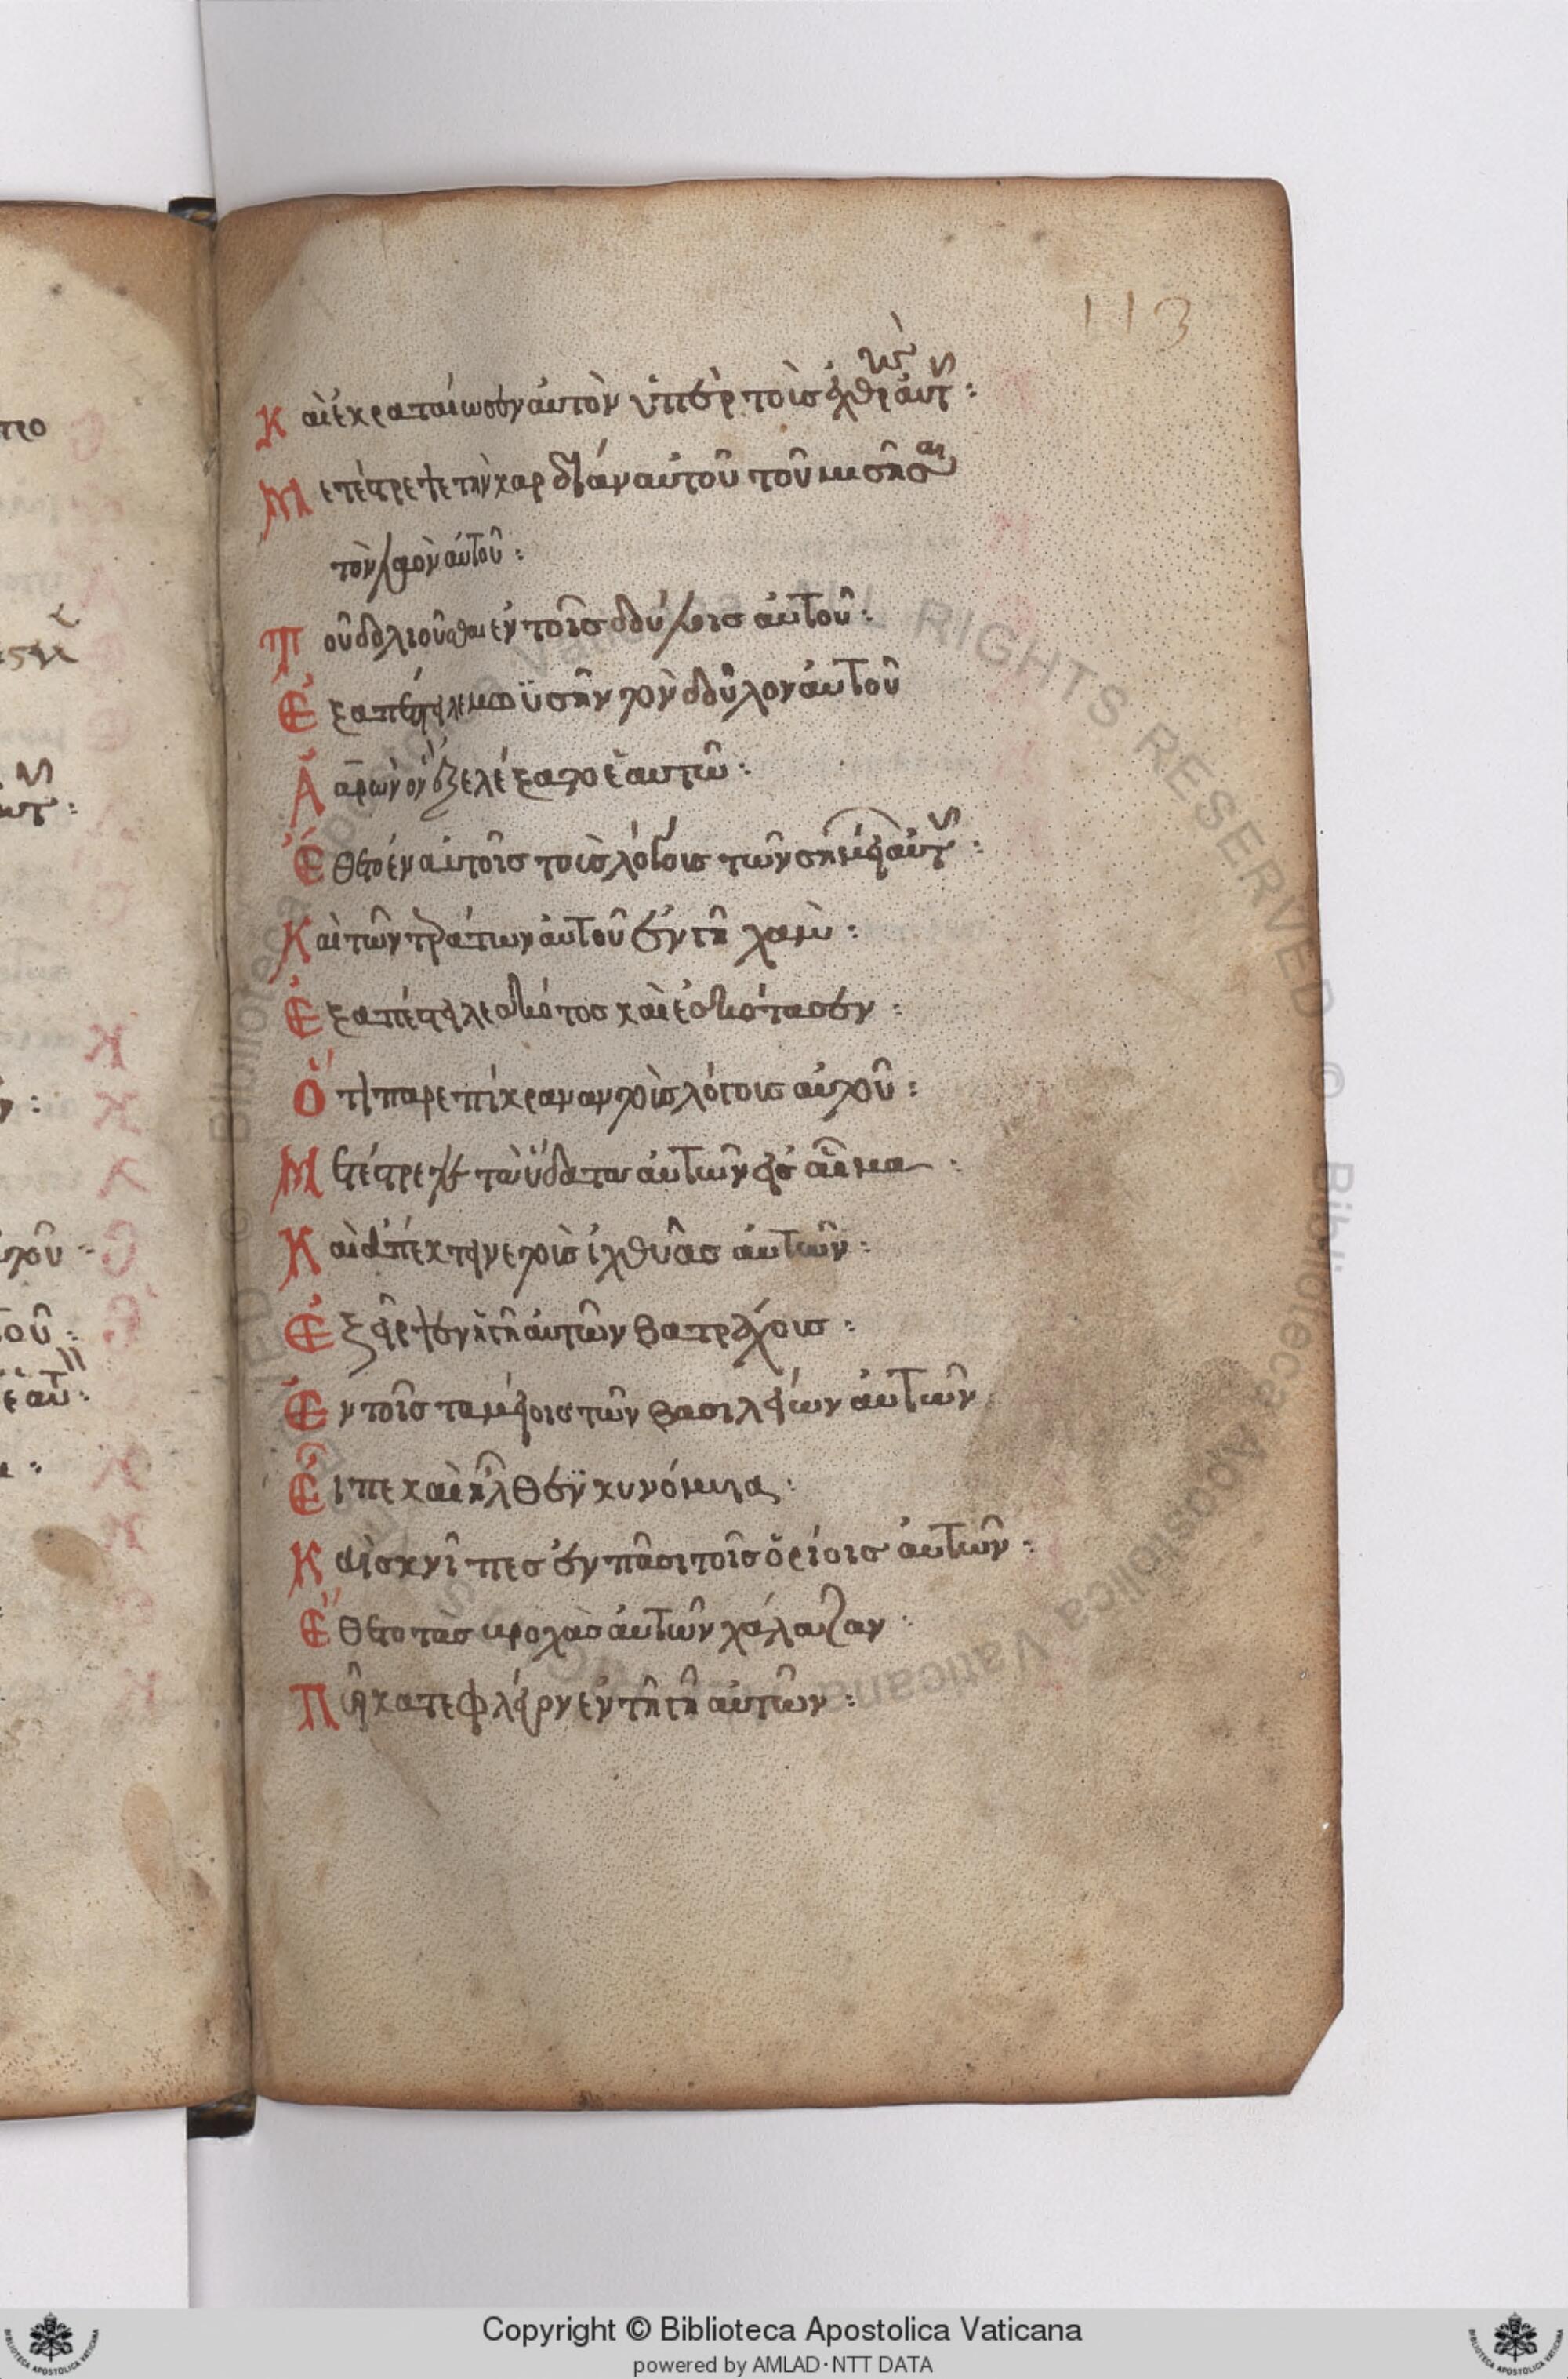 113
Καὶ ἐκραταίωσεν αὐτὸν ὑπὲρ τοὺς ἐχθροὺς αὐτ :
Μετέστρεψε τὴν καρδίαν αὐτοῦ τοῦ μισῆσαι
τὸν λαὸν αὐτοῦ :
Τοῦ δολιοῦσθαι ἐν τοῖς δούλοις αὐτοῦ :
Ἐξαπέστειλε μωϋσῆν τὸν δοῦλον αὐτοῦ
Ἀαρὼν ὃν ἐξελέξατο ἑαυτῶ :
Ἔθετο ἐν αὐτοῖς τοὺς λόγους τῶν σημείων αὐτ :
Καὶ τῶν τεράτων αὐτοῦ ἐν γῆ χαμ :
Ἐξαπέστειλε σκότος καὶ ἐσκότασεν :
Ὅτι παρεπίκραναν τοὺς λόγους αὐτοῦ :
Μετέστρεψε τὰ ὕδατα αὐτῶν εἰς αἷμα :
Καὶ ἀπέκτεινε τοὺς ἰχθύας αὐτῶν :
Ἐξῆρψεν ἡ γῆ αὐτῶν βατράχους :
Ἐν τοῖς ταμείοις τῶν βασιλείων αὐτῶν
Εἶπε καὶ ἦλθεν κυνόμυια :
Καὶ σκνῖπες ἐν πᾶσι τοῖς ὁρίοις αὐτῶν :
Ἔθετο τὰς βροχὰς αὐτῶν χάλαζαν :
Πῦρ καταφλέγον ἐν τῆ γῆ αὐτῶν :
Copyright © Biblioteca Apostolica Vaticana
powered by AMLAD·NTT DATA